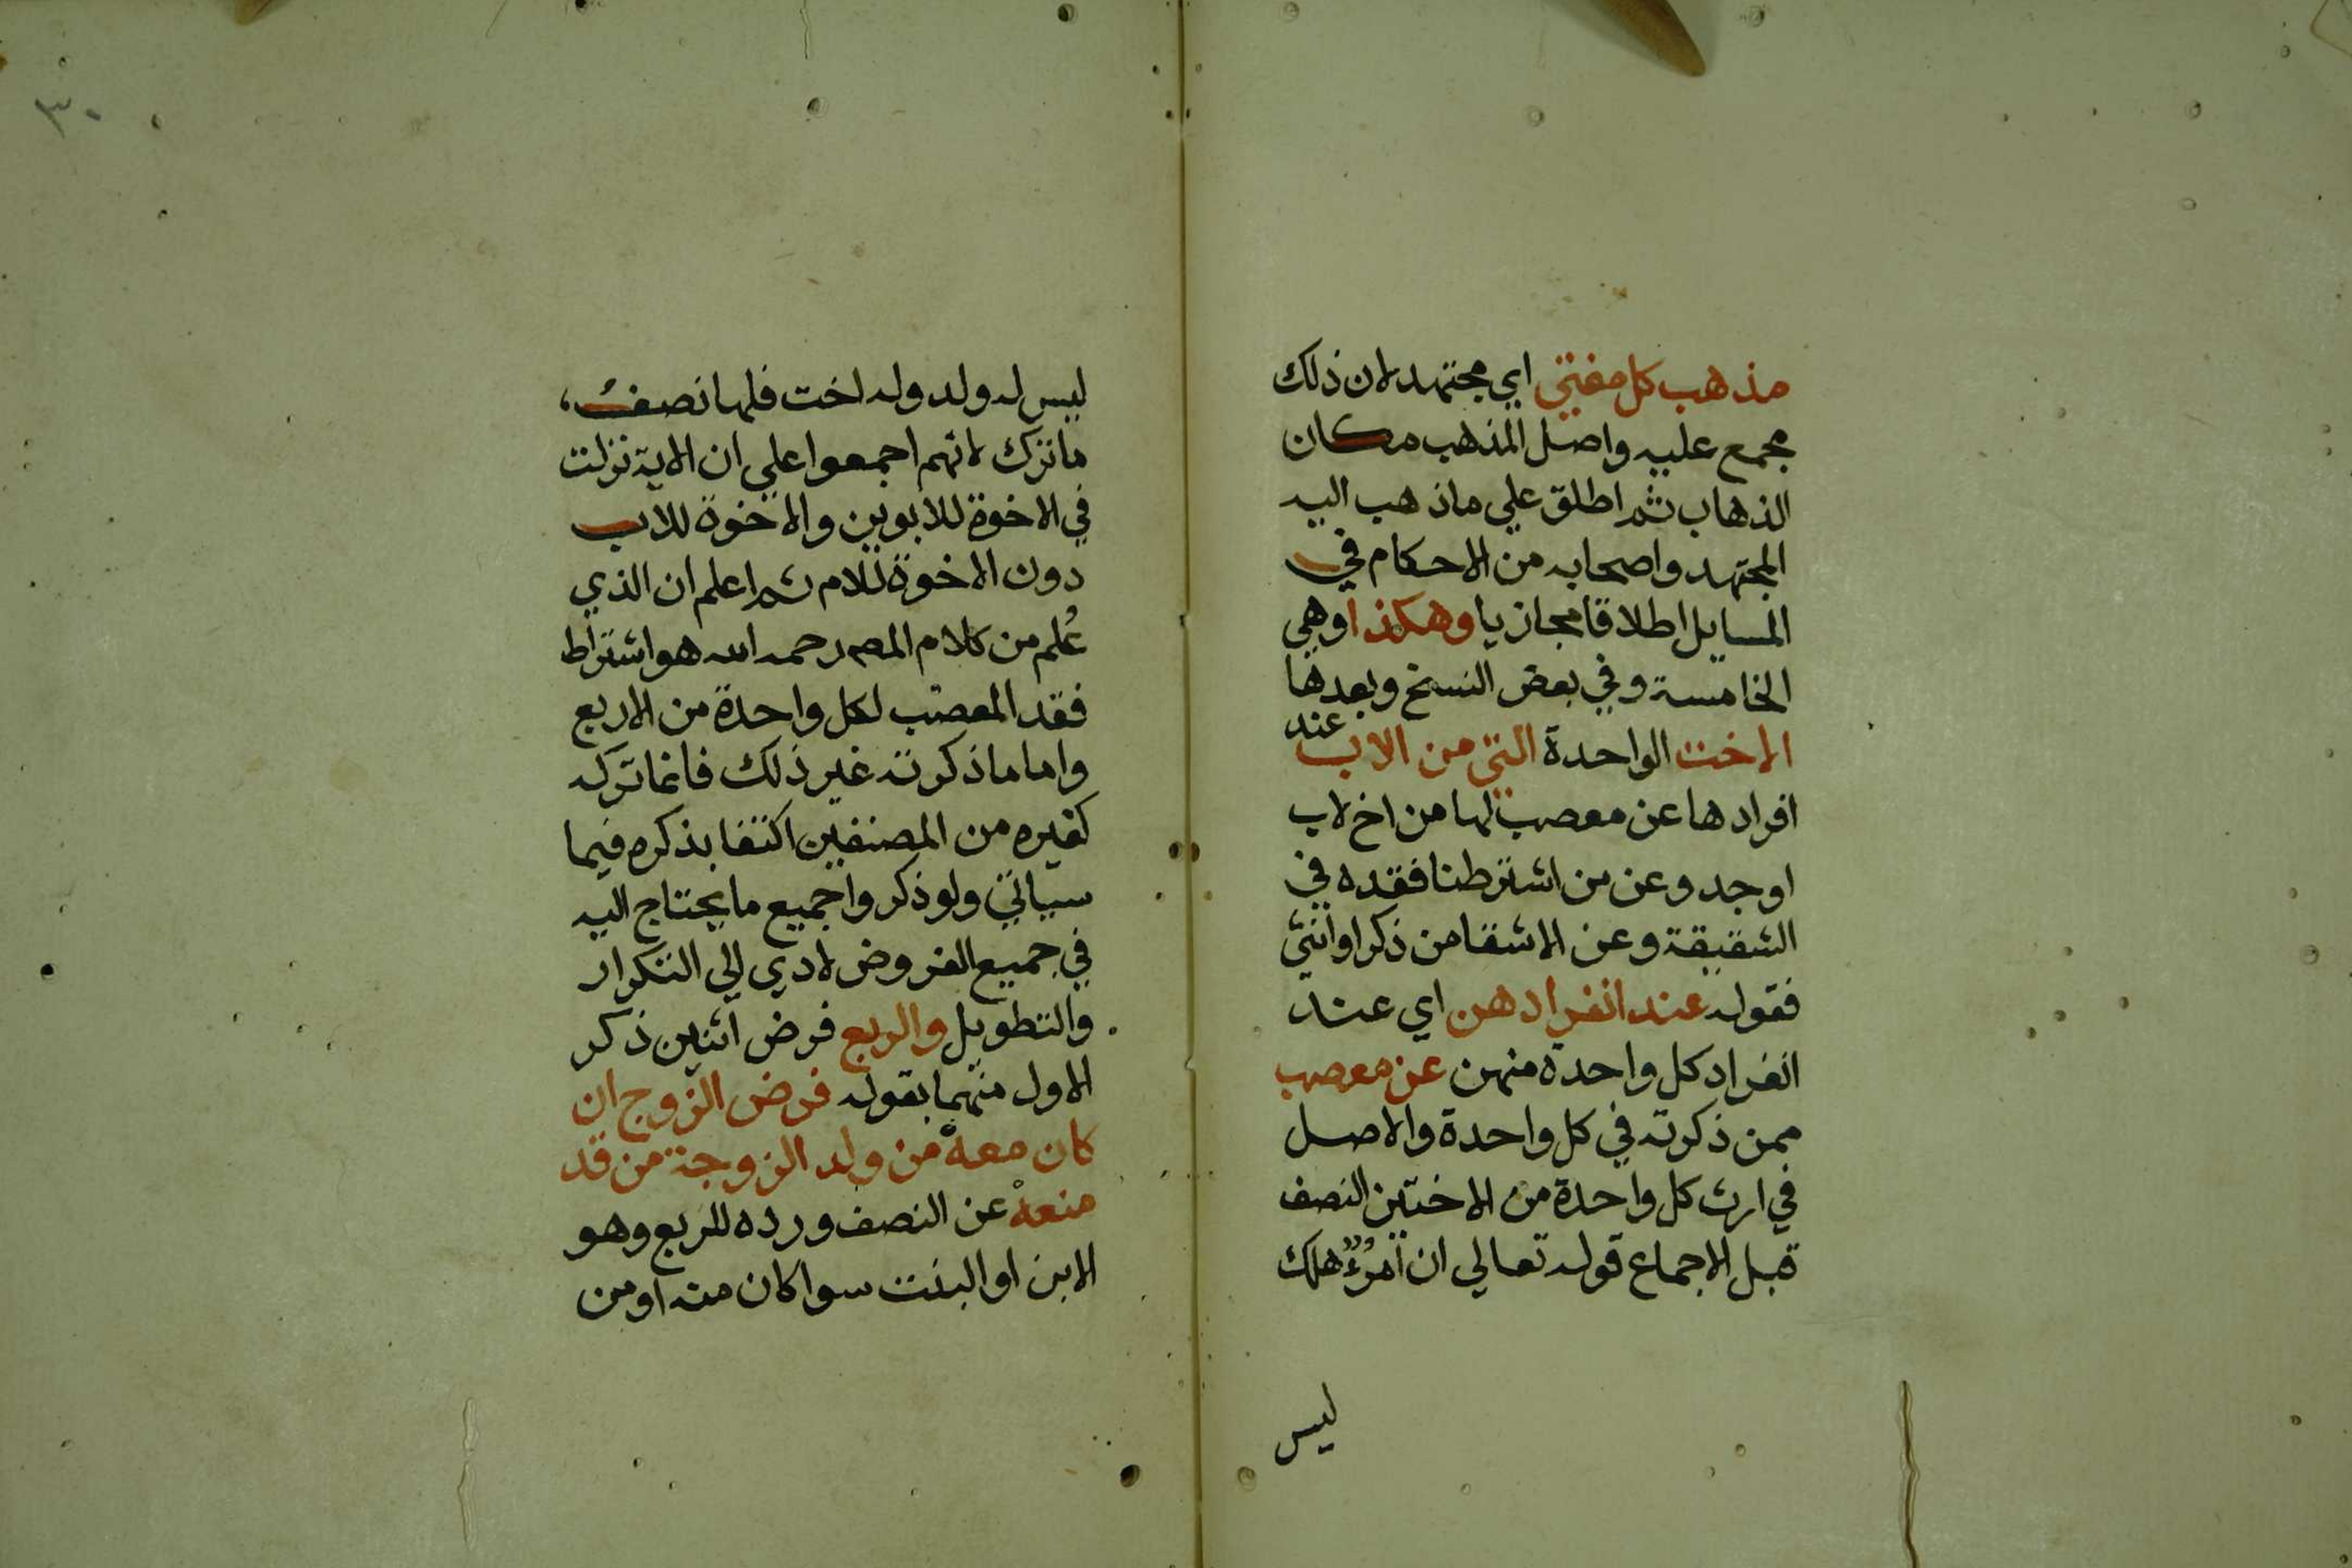 مذهب كل مفتي اي مجتهد لان ذلك
مجمع عليه واصل المذهب مكان
الذهاب ثم اطلق علي ماذهب اليه
المجتهد واصحابه من الاحكام في
المسايل اطلاقا مجازيا وهكذا وهي
الخامسة وفي بعض النسخ وبعدها
الاخت الواحدة التي من الاب عند
افرادها عن معصب لها من اخ لاب
اوجد وعن من اشترطنا فقده في
الشقيقة وعن الاشقا من ذكر اوانثي
فقوله عند انفرادهن اي عند
انفراد كل واحدة منهن عن معصب
ممن ذكرته في كل واحدة والاصل
في ارث كل واحدة من الاختين النصف
قبل الاجماع قوله تعالي ان امرُؤٌ هلك
ليس
٣٠
ليس له ولد وله اخت فلها نصف
ما ترك لانهم اجمعوا علي ان الاية نزلت
في الاخوة للابوين والاخوة للاب
دون الاخوة للام ثم اعلم ان الذي
عُلم من كلام المصر رحمه الله هو اشتراط
فقد المعصب لكل واحدة من الاربع
واما ماذكرته غير ذلك فانما تركه
كغيره من المصنفين اكتفا بذكره فيما
سياتي ولو ذكروا جميع ما يحتاج اليه
في جميع الفروض لادي الي التكرار
والتطويل والربع فرض اثنين ذكر
الاول منهما بقوله فرض الزوج ان
كان معهْ من ولد الزوجة من قد
منعهْ عن النصف ورده للربع وهو
الابن او البنت سوا كان منه اومن